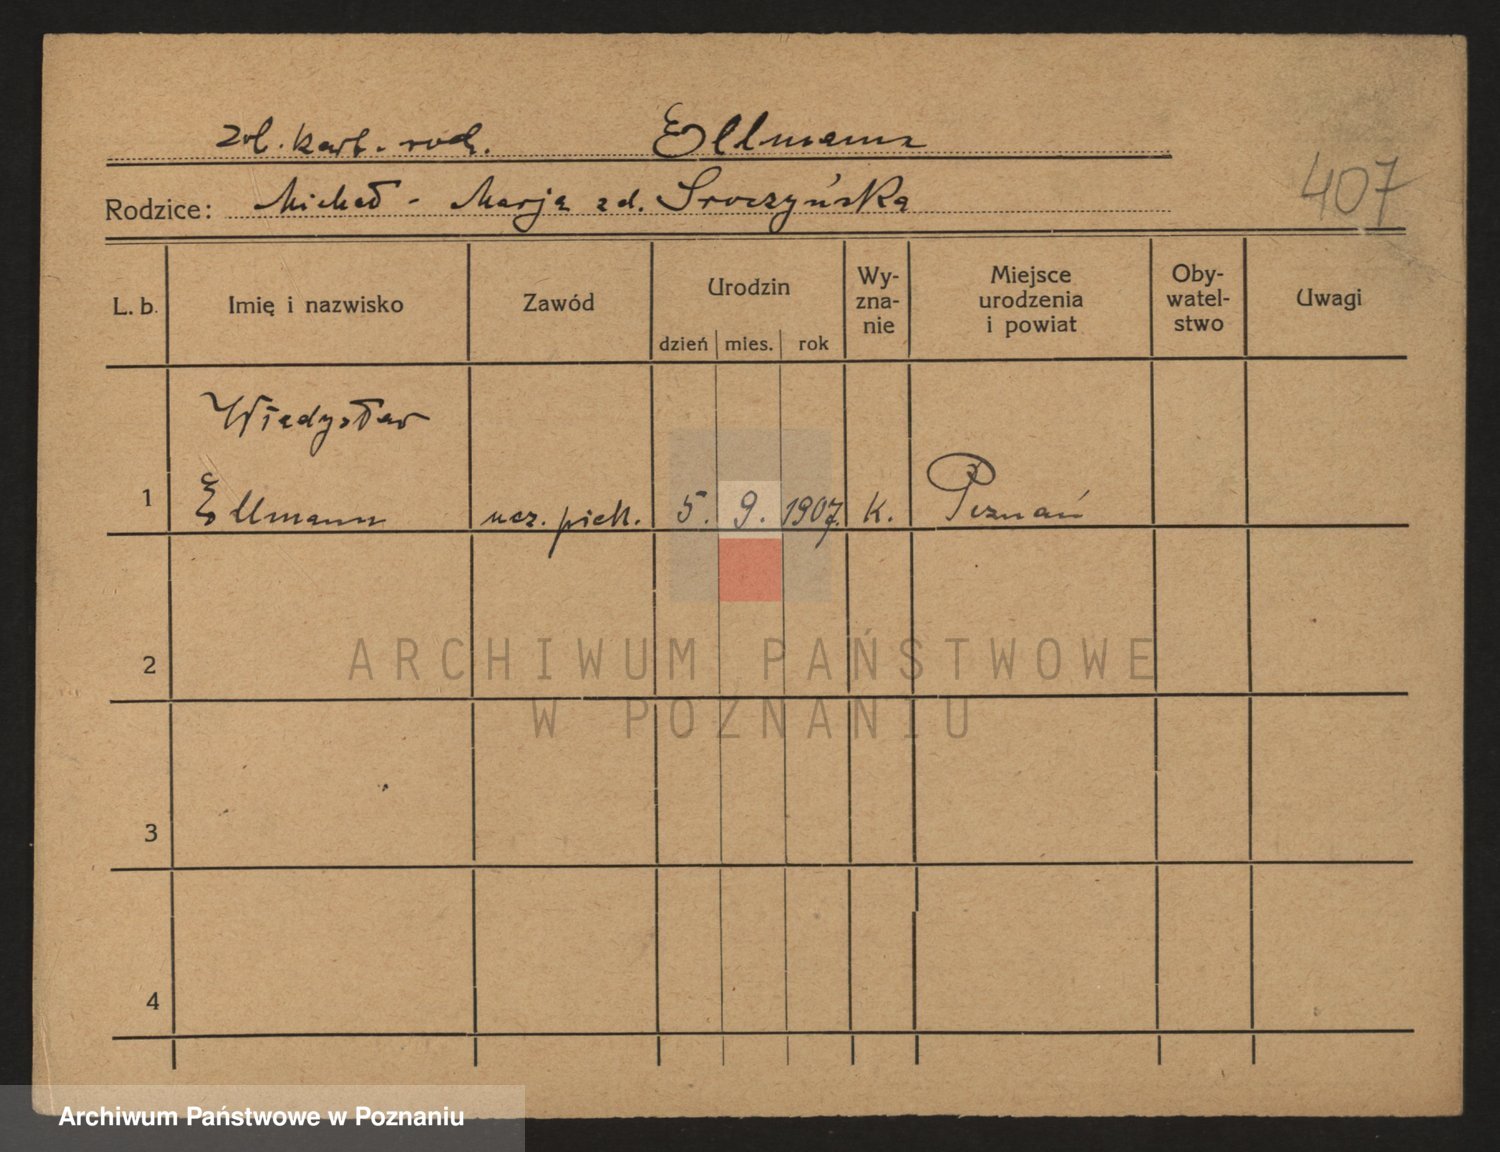 zob. kart. rodz. Ellmann
407
Rodzice: Michał - Marja zd. Sroczyńska
L. b. Imię i nazwisko Zawód Urodzin dzień mies. rok Wy-
zna-
nie Miejsce
urodzenia
i powiat Oby-
watel-
stwo Uwagi
Władysław
1 Ellmann ucz. piek. 5. 9. 1907. k. Poznań
2
ARCHIWUM PAŃSTWOWE
W POZNANIU
3
4
Archiwum Państwowe w Poznaniu